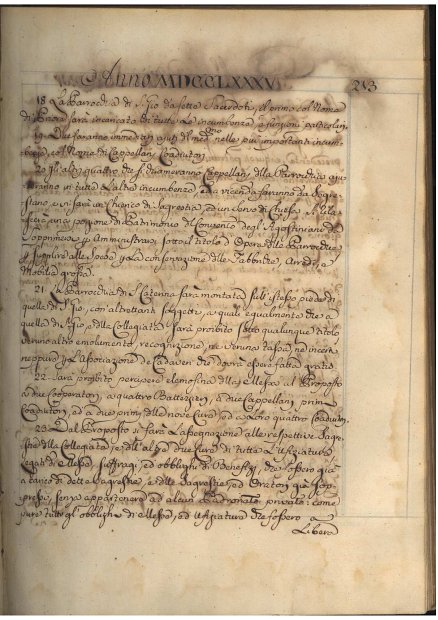 Anno MDCCLXXXV
213
18. La Parrocchia di S. Gio da sette Sacerdoti, il primo col Nome
di Priore sarà incaricato di tutte le incumbenze, e funzioni parrocchiali
19. Due saranno immediati ajuti del med.mo nelle più importanti incum-
benze, col Nome di Cappellani Coadiutori
20. Gli altri quattro che si chiameranno Cappellani della Parrocchia aju-
teranno in tutte l'altre incumbenze, ed a vicenda faranno da Sagre-
stano, e vi sarà un Chierico di Sagrestia, ed un Uomo di Chiesa. Si rila-
scerà una porzione di Patrimonio del Convento degli Agostiniani
Soppresso p amministrarsi sotto il titolo di Opera della Parrocchia
p supplire alle spese p la conservazione delle Fabbriche, Arredi, e
Mobilia Sagra.
21. La Parrocchia di S. Caterina sarà montata sull'istesso piede di
quella di S. Gio, con altrettanti soggetti, a quali egualmente che a
quella di S. Gio, e della Collegiata sarà proibito sotto qualunque titolo
veruno altro emolumento, recognizione, ne veruna tassa, ne incerti
neppure p l'Associazione de Cadaveri che dovrà essere fatta gratis.
22. Sarà proibito percipere elemosina della Messa al Proposto
a due Cooperatori, a quattro Battezieri, a due Cappellani primi
Coadiutori, ed a due primi delle nove Cure, ed a Loro quattro Coadiutori.
23. Dal Proposto si farà l'assegnazione alle respettive Sagre-
stie della Collegiata, e dell'altre due Cure di tutta l'Ufiziatura
Legati di Messe, suffragi, ed obblighi di Benefizj, che fossero già
a carico di dette Sagrestie, e delle Sagrestie, ed Oratori già sop-
pressi, senza appartenere ad alcun Padronato privato: come
pure tutti gl'obblighi di Messe, ed Ufiziatura che fossero a
Libera